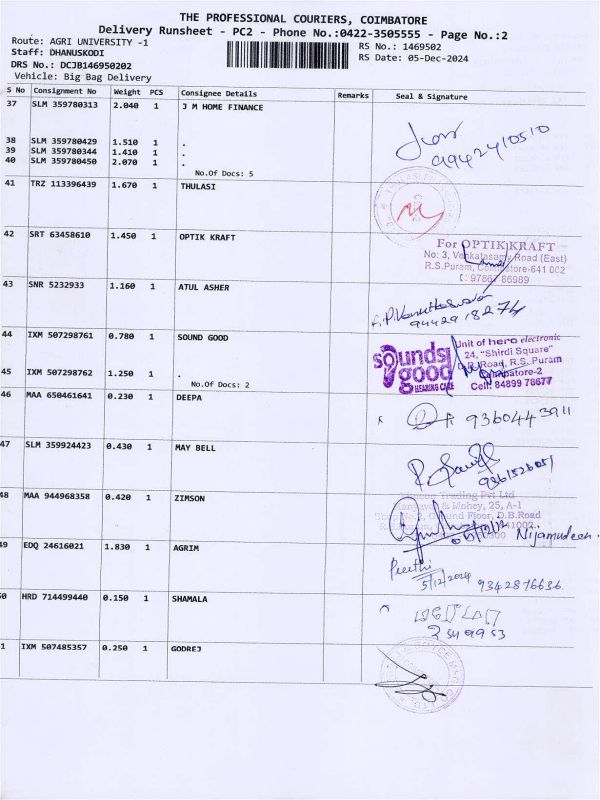 THE PROFESSIONAL COURIERS, COIMBATORE
Delivery Runsheet - PC2 - Phone No.:0422-3505555 - Page No.:2
Route: AGRI UNIVERSITY -1
RS No.: 1469502
Staff: DHANUSKODI
RS Date: 05-Dec-2024
DRS No.: DCJB146950202
Vehicle: Big Bag Delivery
S No Consignment No Weight PCS Consignee Details Remarks Seal & Signature
37 SLM 359780313 2.040 1 J M HOME FINANCE
38 SLM 359780429 1.510 1 .
39 SLM 359780344 1.410 1 .
40 SLM 359780450 2.070 1 .
No.Of Docs: 5
9942410510
41 TRZ 113396439 1.670 1 THULASI
42 SRT 63458610 1.450 1 OPTIK KRAFT
For OPTIK KRAFT
No: 3, Venkatasamy Road (East)
R.S.Puram, Coimbatore-641 002
43 SNR 5232933 1.160 1 ATUL ASHER
9442918274
44 IXM 507298761 0.780 1 SOUND GOOD
sounds good
HEARING CARE
Unit of hero electronic
24, "Shirdi Square"
D.B.Road, R.S. Puram
Coimbatore-2
Cell: 84899 76677
45 IXM 507298762 1.250 1 .
No.Of Docs: 2
46 MAA 650461641 0.230 1 DEEPA
9360443911
47 SLM 359924423 0.430 1 MAY BELL
48 MAA 944968358 0.420 1 ZIMSON
Trading Pvt Ltd
25, A-1
Floor, D.B.Road
Nijamudeen
49 EDQ 24616021 1.830 1 AGRIM
Preethi
5/12/2024 9342876636
50 HRD 714499440 0.150 1 SHAMALA
1 IXM 507485357 0.250 1 GODREJ